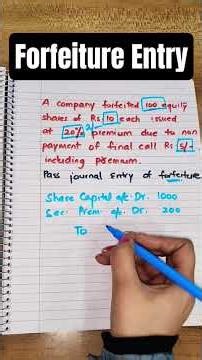 Forfeiture Entry
A company forfeited 100 equity
shares of Rs 10 each issued
2
at 20% premium due to non
payment of final call Rs 5/-
including premium.
Pass journal entry of forfeiture
Share Capital a/c Dr. 1000
Sec. Prem. a/c. Dr. 200
To